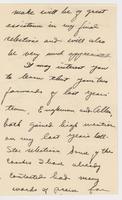 make will be of great
assistance in my final
selections and will also
be very much appreciated.
It may interest you
to learn that your two
forwards of last years'
team, and Allen,
both gained high mention
on my last years All-
Star selections. Some of the
coaches I had already
contacted had many
words of praise for